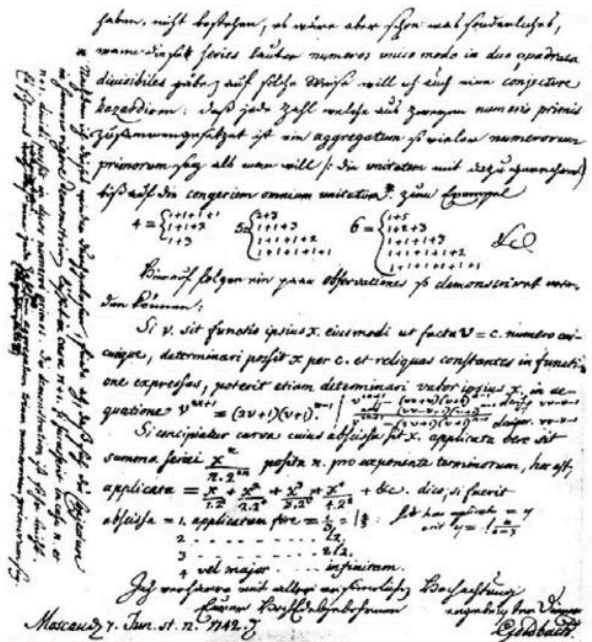 haben, nicht bestehen, es wäre aber schon was sonderliches,
wenn eine solche series lauter numeros unico modo in duo quadrata
divisibiles gäbe, auf solche Weise will ich auch eine conjecture
hazardiren: daß jede Zahl welche aus zweyen numeris primis
zusammengesetzet ist ein aggregatum so vieler numerorum
primorum sey als man will /: die unitatem mit dazu gerechnet :/
biß auf die congeriem omnium unitatum* zum Exempel
4 = { 1+1+1+1
1+1+2
1+3
5 = { 2+3
1+1+3
1+1+1+2
1+1+1+1+1
6 = { 1+5
1+2+3
1+1+1+3
1+1+1+1+2
1+1+1+1+1+1
&c
Hierauf folgen ein paar observationes so demonstriret wer-
den können:
Si v. sit functio ipsius x. eiusmodi ut facta v = c. numero cui-
cunque, determinari possit x per c. et reliquas constantes in functi-
one expressas, poterit etiam determinari valor ipsius x. in ae-
quatione v²ⁿ⁺¹ = (2v+1)(v+1)ⁿ⁻¹
Si concipiatur curva cuius abscissa sit x. applicata vero sit
summa seriei xⁿ/n.2²ⁿ posita n. pro exponente terminorum, hoc est,
applicata = x/1.2² + x²/2.2⁴ + x³/3.2⁶ + x⁴/4.2⁸ + &c. dico, si fuerit
abscissa = 1. applicatam fore = l4/3
2 . . . . . . . . . . l2.
3 . . . . . . . . . . 2l2.
4 vel major . . . . infinitam.
Ich verharre mit aller ersinnlichen Hochachtung
Euer Hochedelgebohrnen
ergebenster Diener
Goldbach
Moscau d. 7. Jun. st. n. 1742.
* Nachdem ich dieses wieder durchgelesen, finde ich, daß sich die conjecture
in summo rigore demonstriren läßet in casu n+1. si successerit in casu n. et
n+1. dividi possit in duos numeros primos. Die demonstration ist sehr leicht.